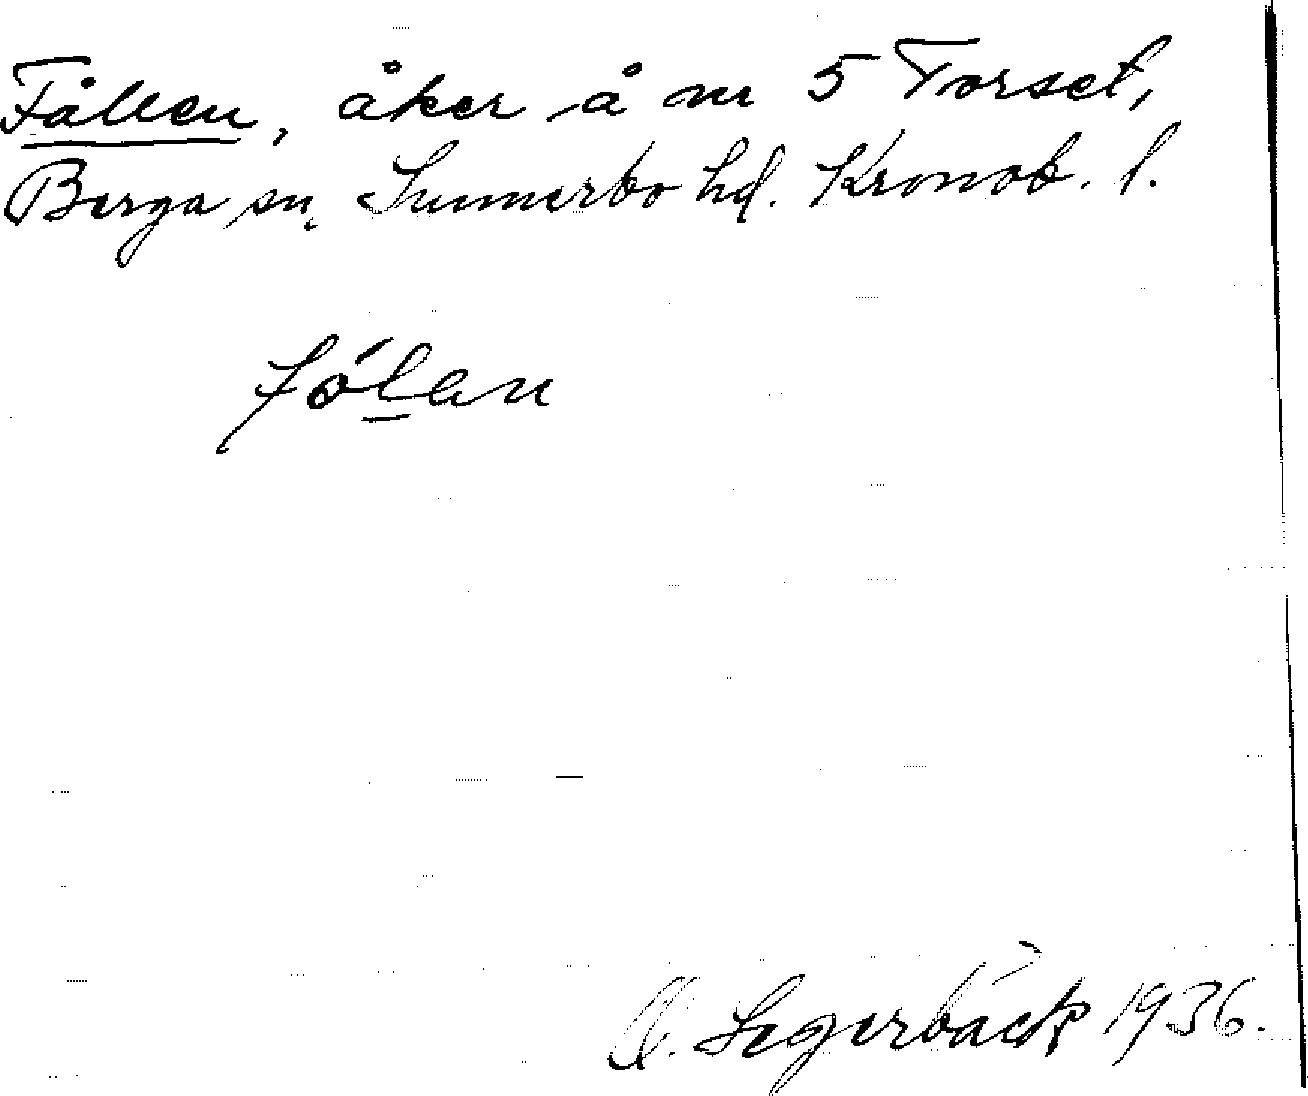 Fållen, åker å nr 5 Torset,
Berga sn, Sunnerbo hd. Kronob. l.
fó̀lan
O. Segerbäck 1936.